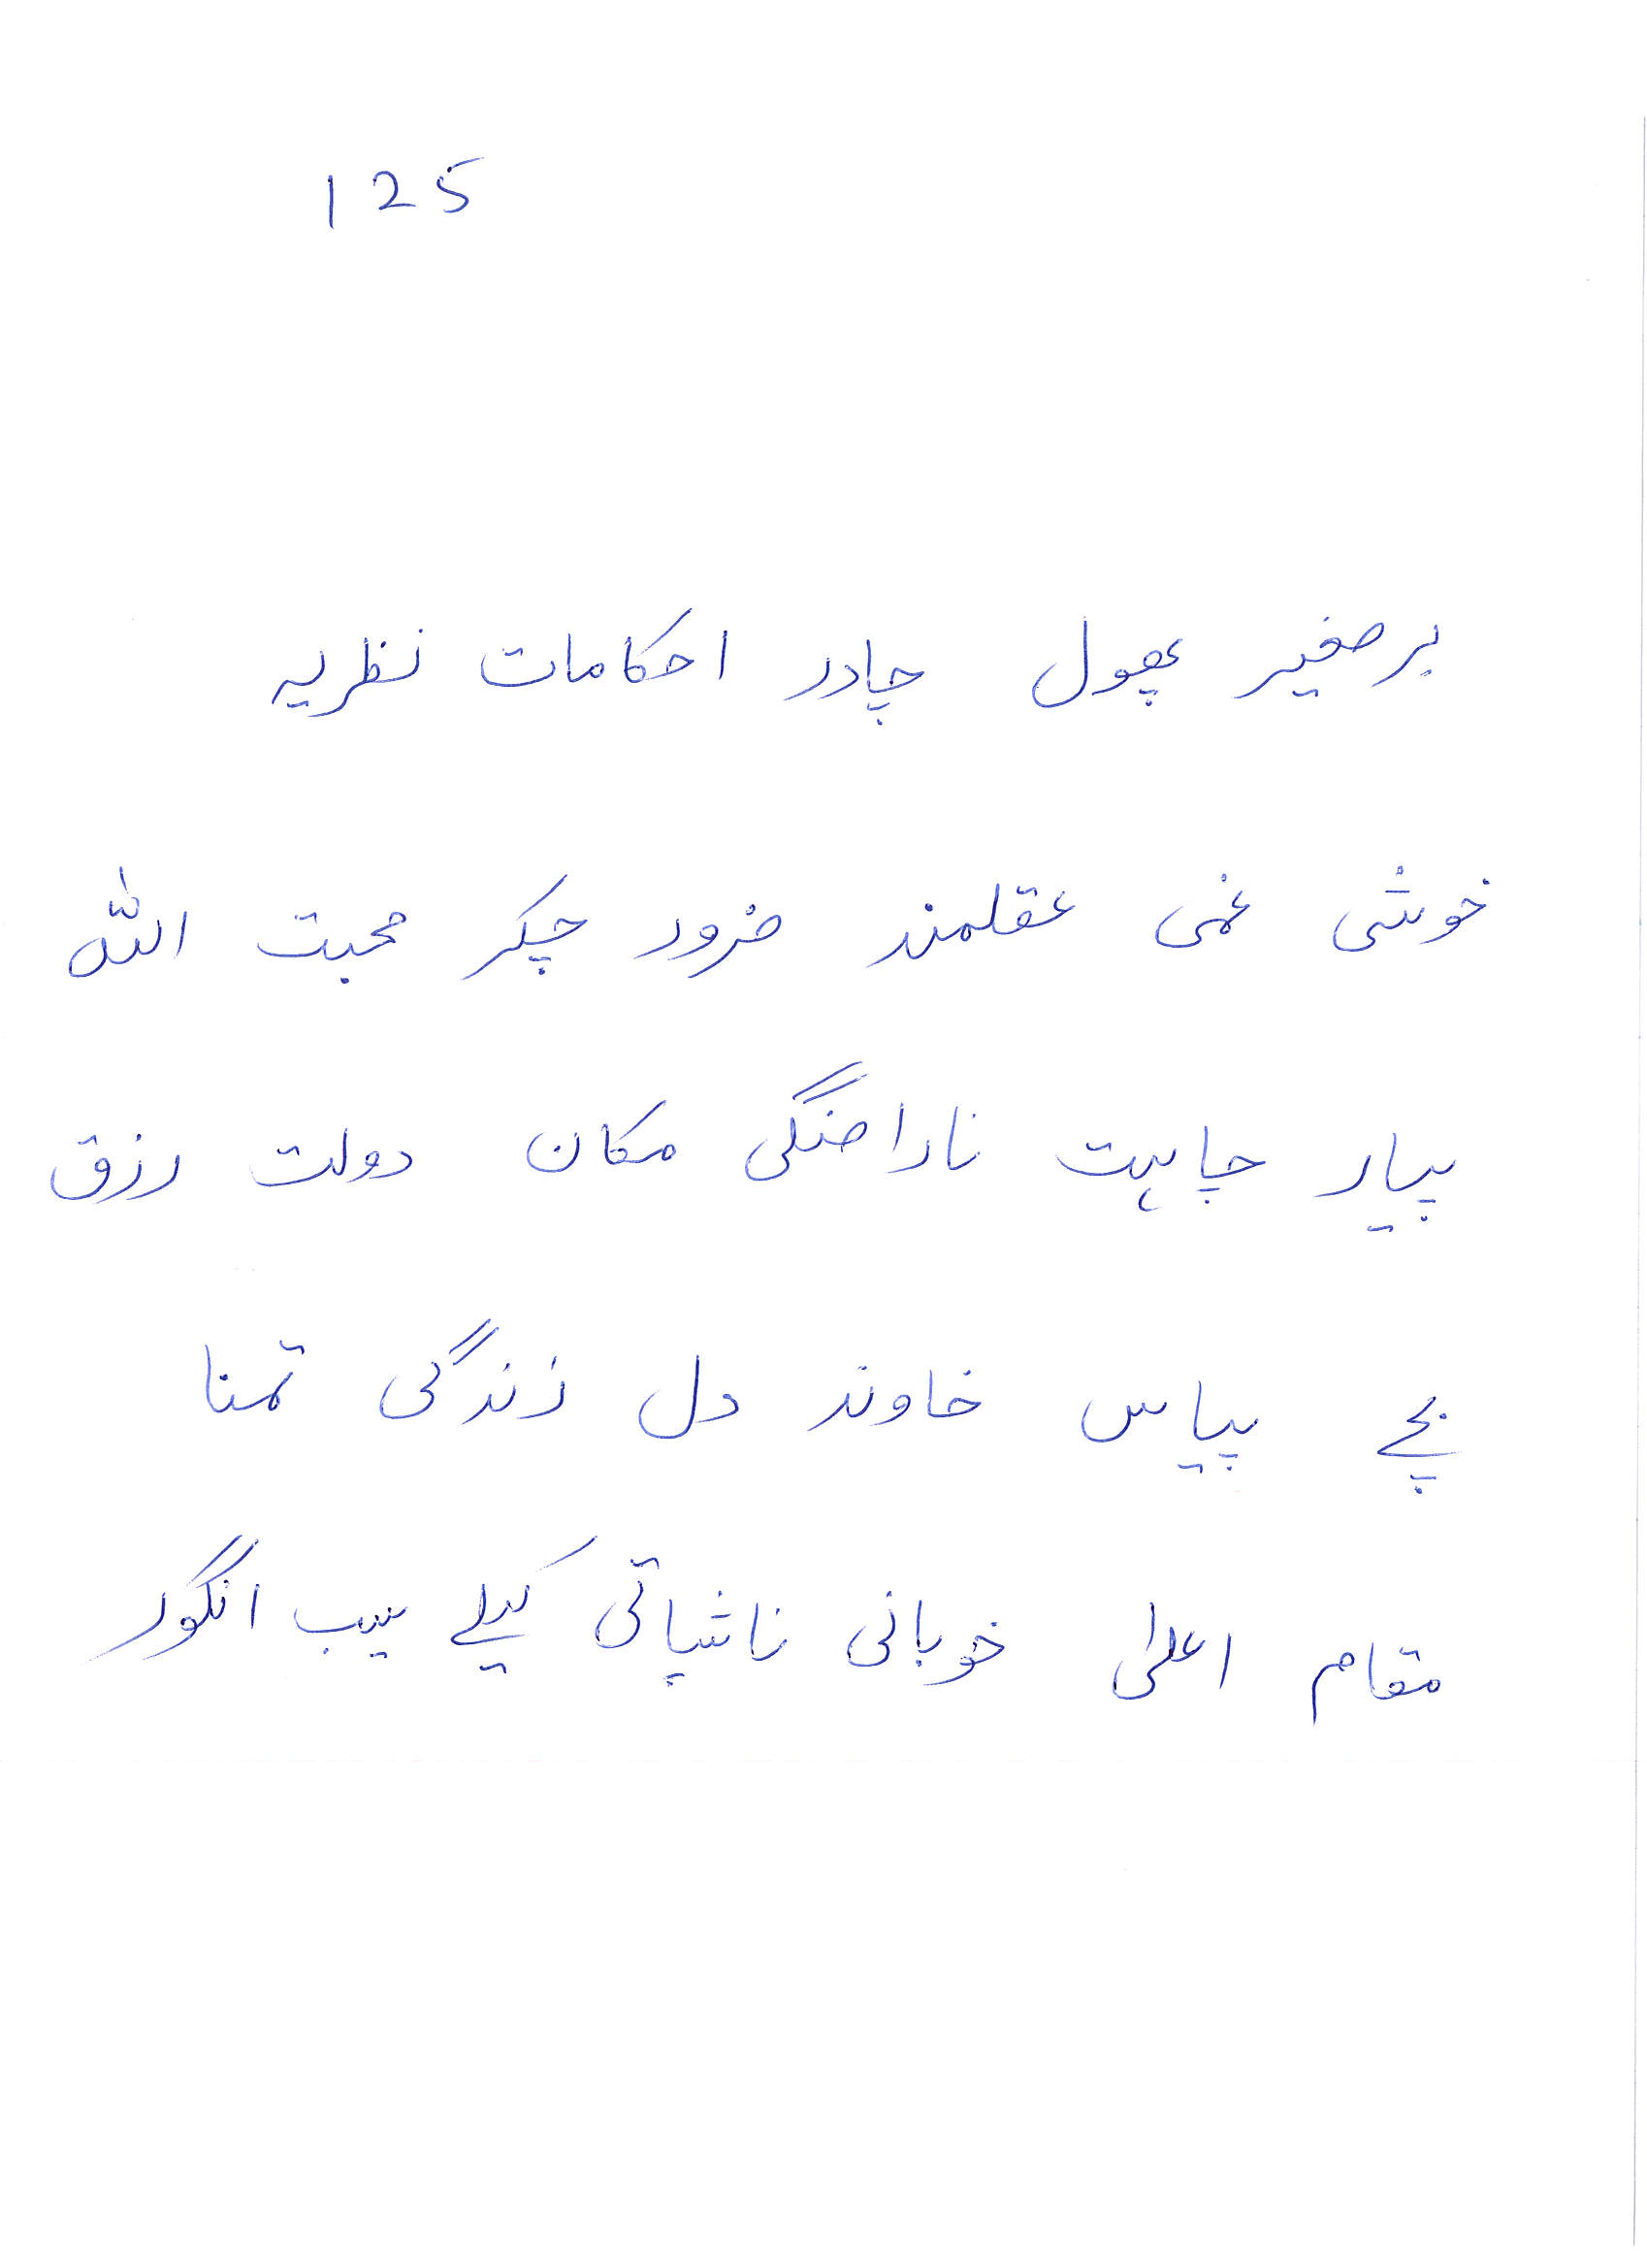 125
برصغیر پھول چادر احکامات نظریہ
خوشی غمی عقلمند ضرور چکر محبت اللہ
پیار چاہت ناراضگی مکان دولت رزق
بچے پیاس خاوند دل زندگی تمنا
مقام اعلیٰ خوبانی ناشپاتی کیلے سیب انگور